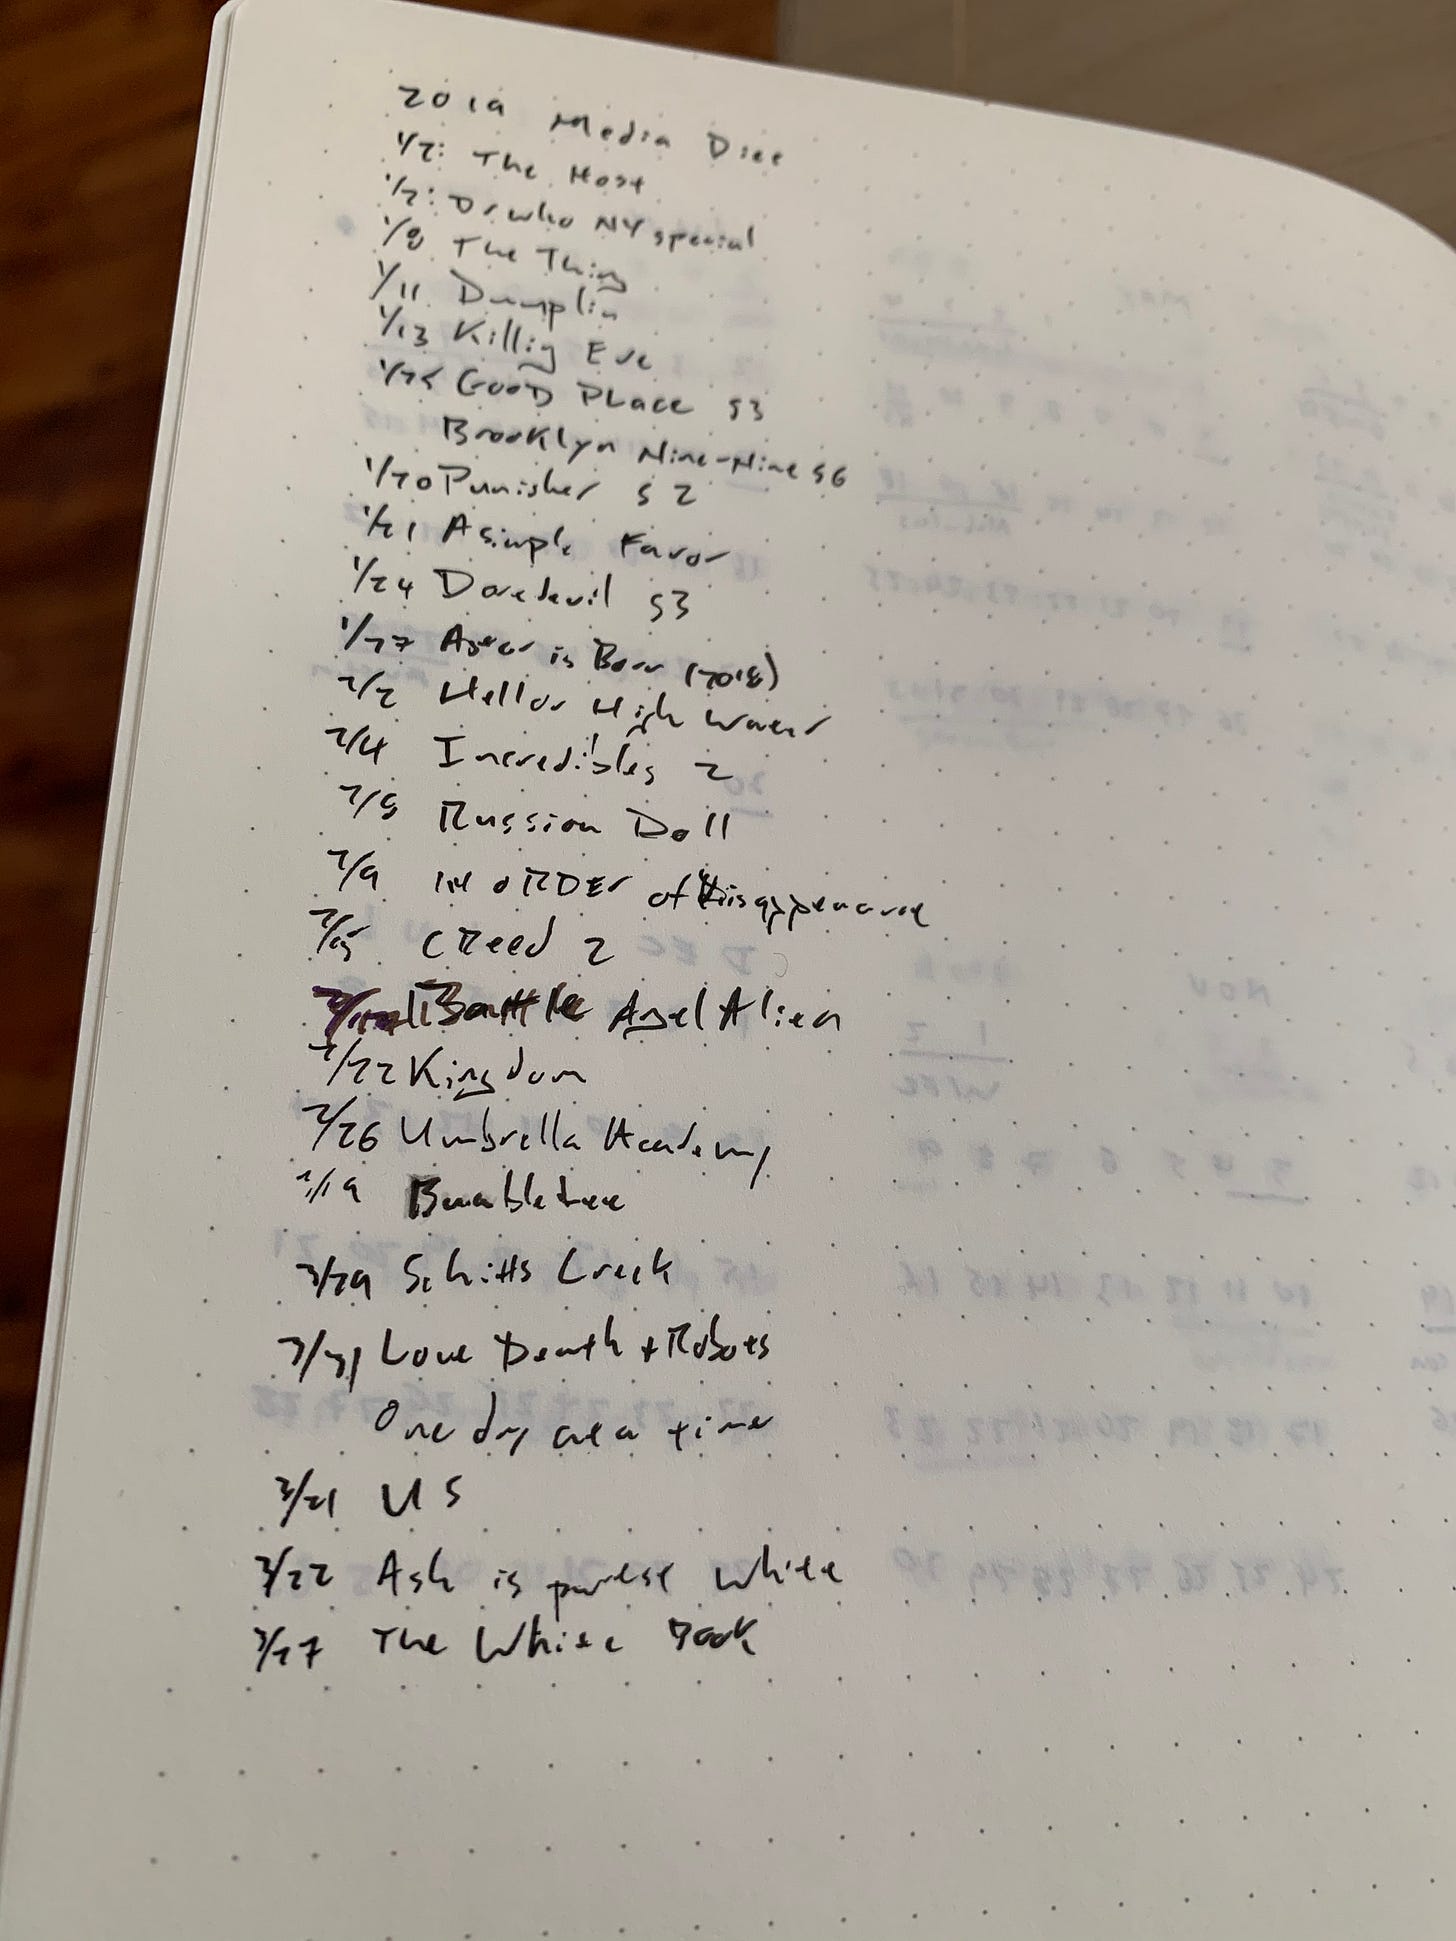 2019 Media Diet
1/2: The Host
1/2: Dr who NY special
1/8 The Thing
1/11 Dumplin
1/13 Killig Eve
GOOD PLace S3
Brooklyn Nine-Nine S6
1/20 Punisher S2
1/21 A simple Favor
1/24 Daredevil S3
1/27 A star is Born (2018)
2/2 Hell or High Water
2/4 Incredibles 2
2/8 Russian Doll
2/9 IN ORDER of Disappearance
CReed 2
Battle Angel Alien
2/22 Kingdom
2/26 Umbrella Academy
Bumblebee
3/29 Schitts Creek
Love Death + Robots
One day at a time
3/21 US
3/22 Ash is purest white
3/27 The White